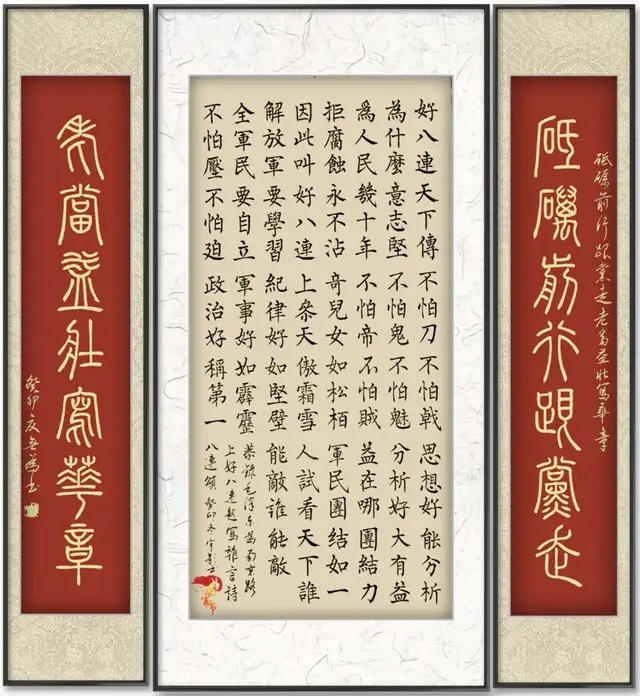 砥礪前行跟黨走
砥礪前行跟黨走老當益壯寫華章
好八連天下傳
為什麼意志堅
爲人民幾十年
拒腐蝕永不沾
因此叫好八連
解放軍要學習
全軍民要自立
不怕壓不怕迫
不怕刀不怕戟
不怕鬼不怕魅
不怕帝不怕賊
奇兒女如松柏
上參天傲霜雪
紀律好如堅壁
軍事好如霹靂
政治好稱第一
思想好能分析
分析好大有益
益在哪團結力
軍民團結如一
人試看天下誰
能敵誰能敵
恭錄毛澤東為南京路
上好八連題寫雜言詩
八連頌癸卯冬
老當益壯寫華章
癸卯